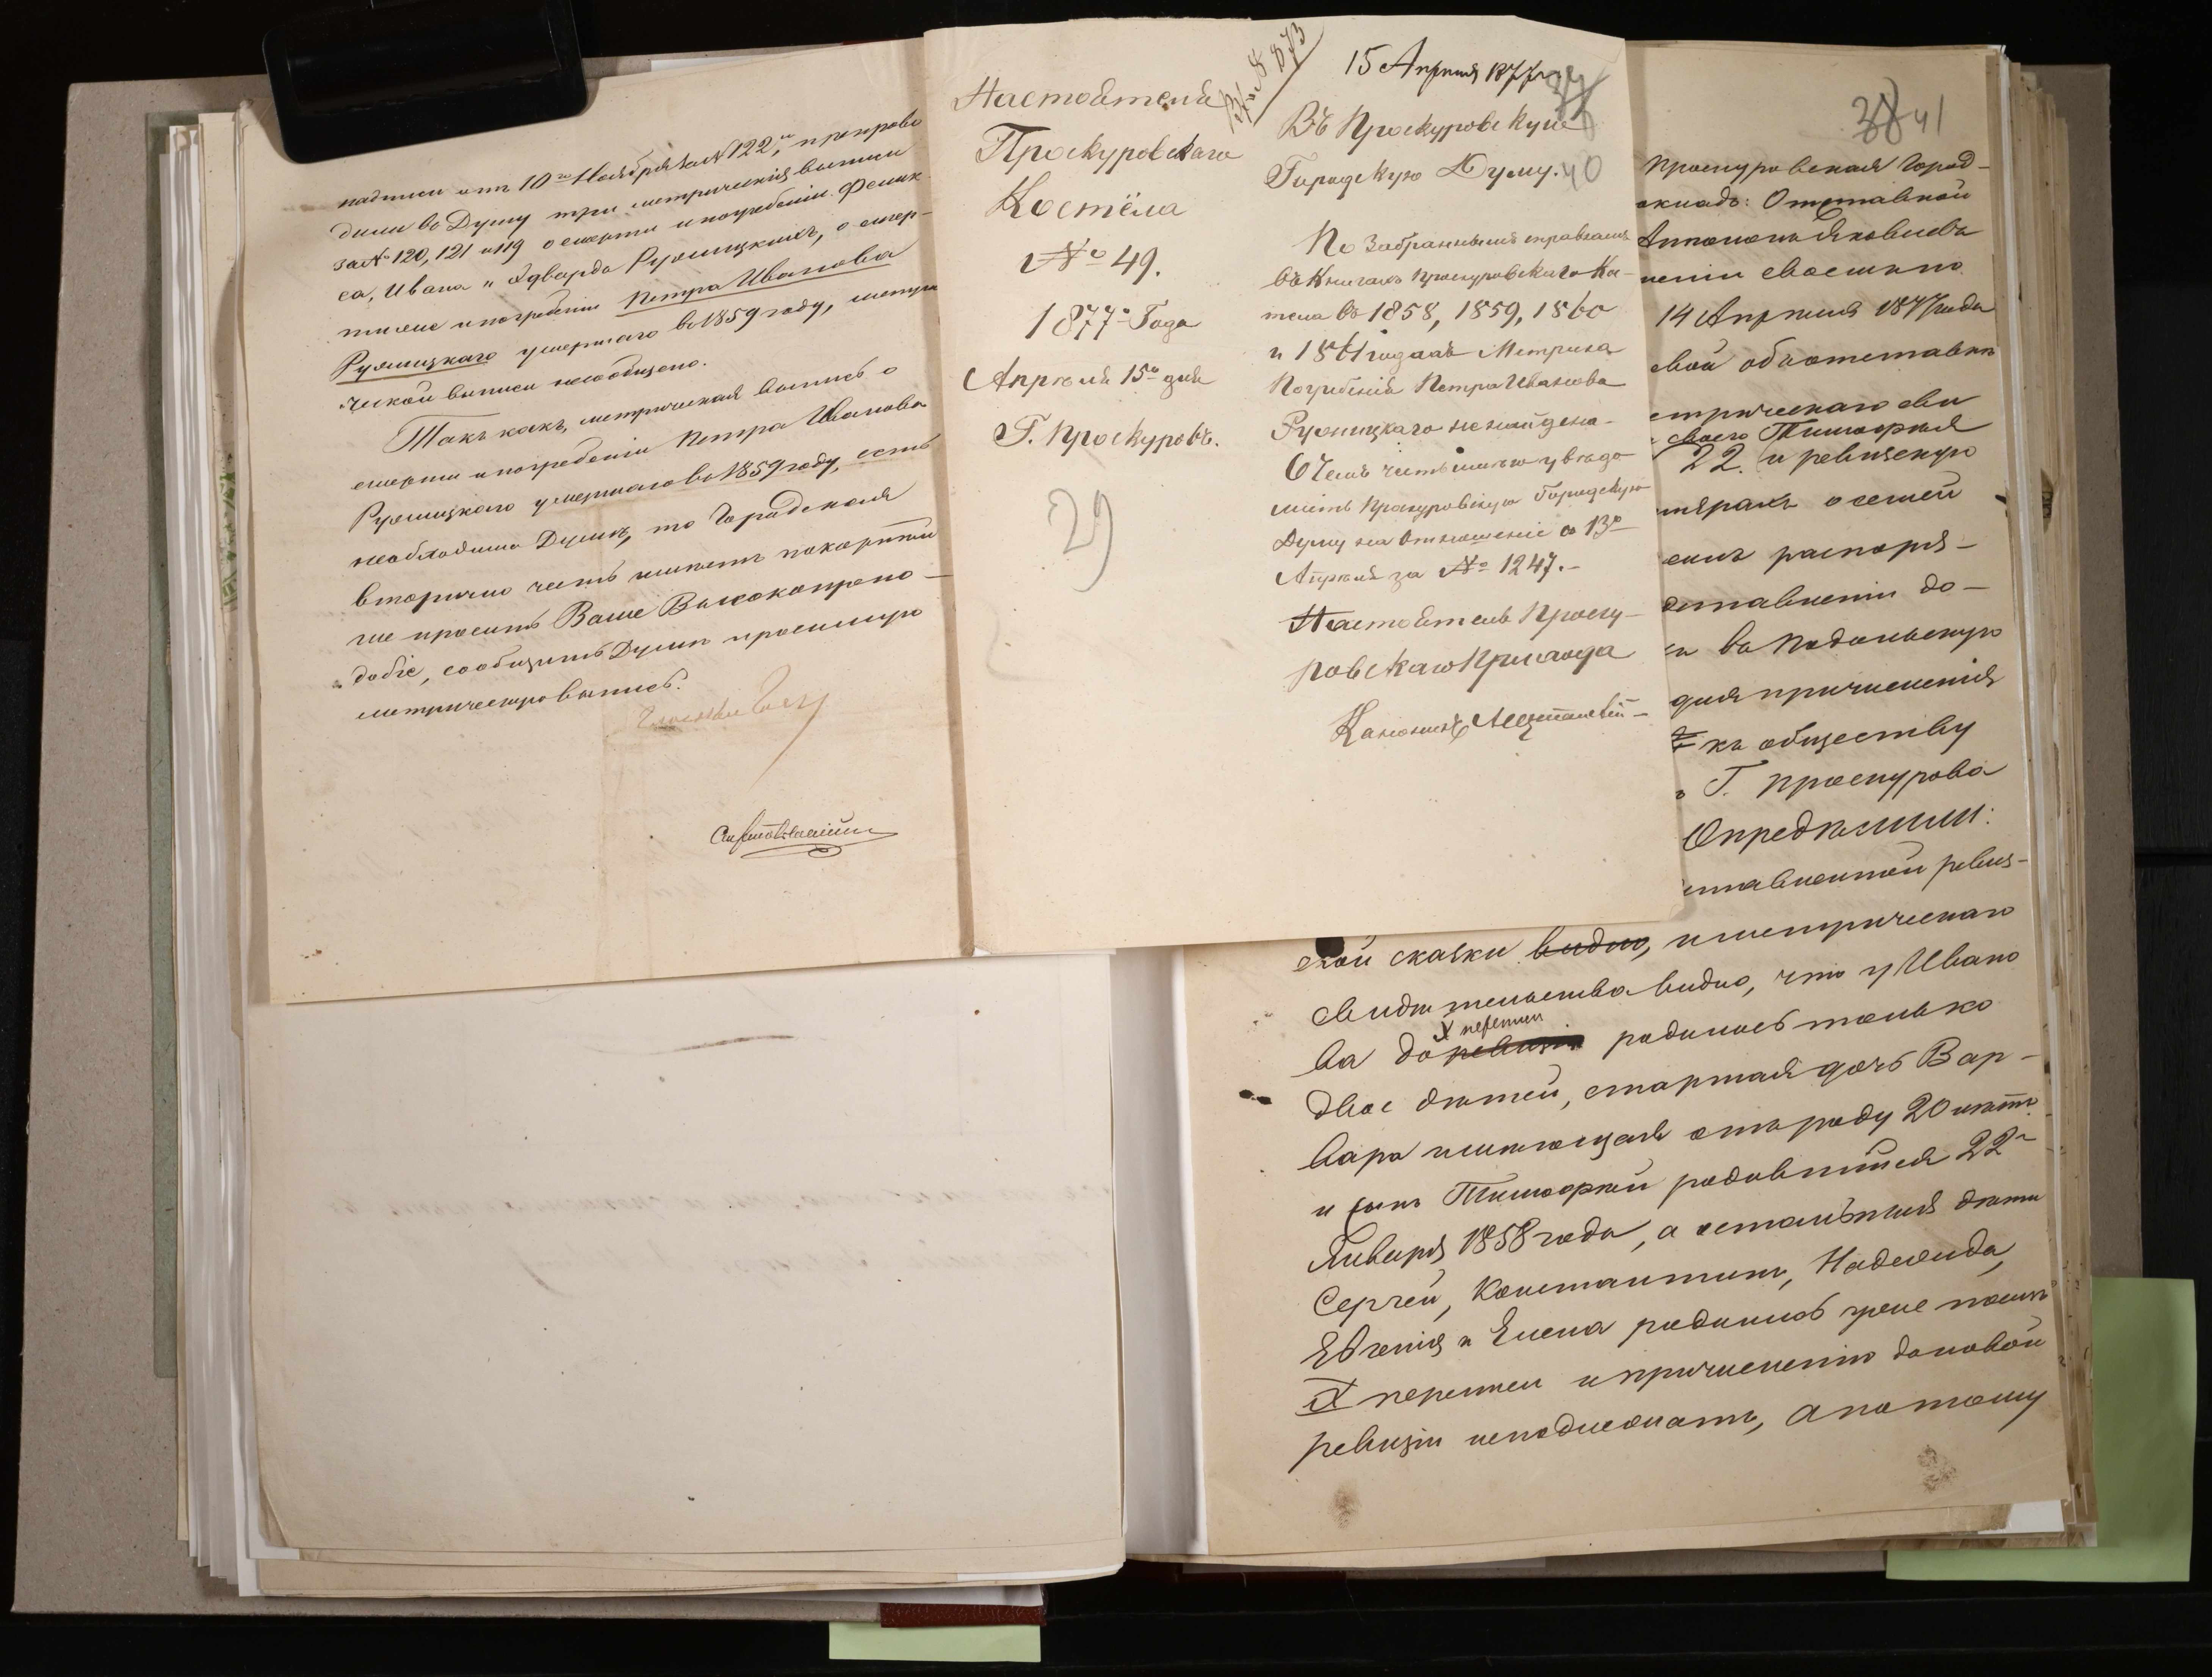 надписи отъ 10го Ноября за № 122м, препрово
дили въ Думу три метрическія выписи
за № 120, 121 и 119 о смерти и погребеніи Феликса
са, Ивана и Эдварда Ружицкихъ, о смер-
ти же и погребеніи Петра Иванова
Ружицкаго умершаго въ 1859 году, метри
ческой выписи не сообщено.
Такъ какъ, метрическая выпись о
смерти и погребеніи Петра Иванова
Ружицкаго умершаго въ 1859 году, есть
необходима Думѣ, то Городская
вторично честь имѣетъ покорнѣй
ше просить Ваше Высокопрепо-
добіе, сообщить Думѣ просимую
метрическую выпись.
Настоятель
Проскуровскаго
Костёла
№ 49.
1877го Года
Апрѣля 15го дня
Г. Проскуровъ.
29
15 Апрѣля 1877
Въ Проскуровскую
Городскую Думу. 40
По забраннымъ справкамъ
въ Книгахъ Проскуровскаго Ко-
тела въ 1858, 1859, 1860
и 1861 годахъ Метрика
Погребенія Петра Иванова
Ружицкаго не найдена.
О Чемъ честь имѣю увѣдо
мить Проскуровскую Городскую
Думу на Отношеніе съ 13го
Апрѣля за № 1247.
Настоятель Проску-
ровскаго Прихода
Каноникъ
38 41
Проскуровская Город-
окладъ: Отставной
Антонъ Яковлевъ
неніи своемъ по
14 Апрѣля 1877 года
свой объ отставкѣ
етрическаго сви
своего Тимофея
22. и ревизскую
терахъ о семей
емъ распоря-
ставленіи до-
и въ Подольскую
для причисленія
къ обществу
Г. Проскурова
Опредѣлили:
ставленной ревиз-
ской сказки видно, и метрическаго
свидѣтельства видно, что у Ивано
X перепеи
ва до ревизіи родилось только
двое дѣтей, старшая дочь Вар-
вара имѣющая отъ роду 20 лѣтъ
и сынъ Тимофей родившійся 22го
Января 1858 года, а остальныя дѣти
Сергей, Константинъ, Надежда,
Евгенія и Елена родились уже послѣ
X перепеи и причисленію до новой
ревизіи неподлежатъ, а потому